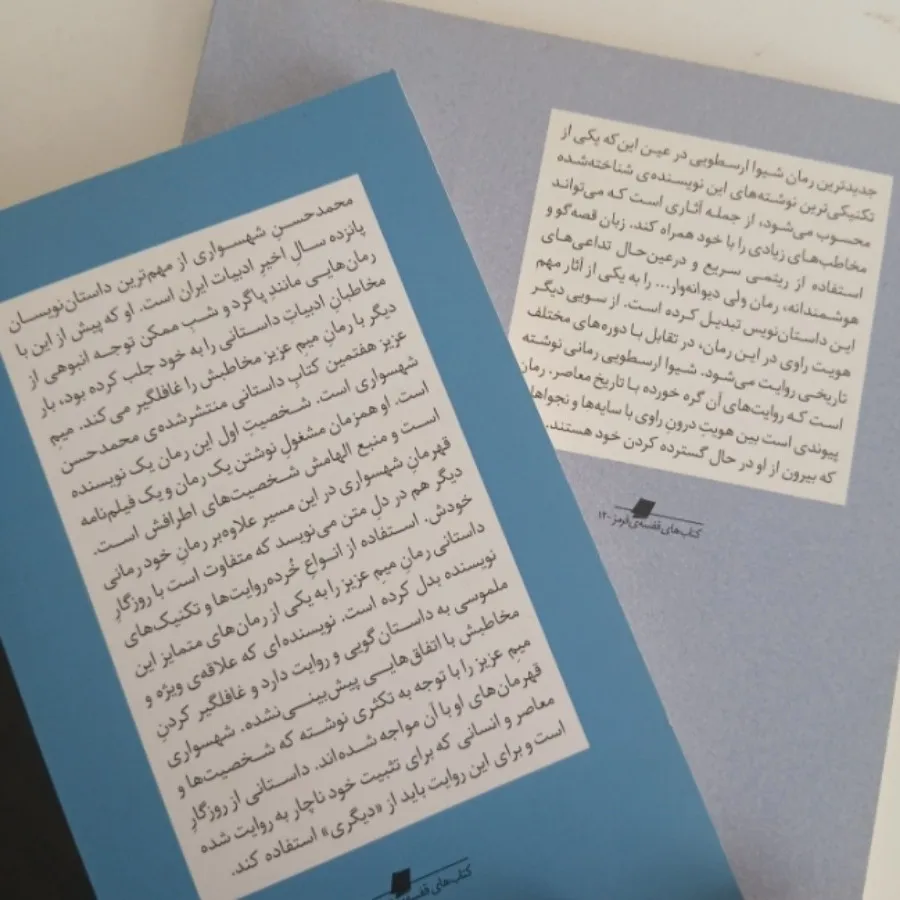 جدیدترین رمان شیوا ارسطویی در عین این‌که یکی از
تکنیکی‌ترین نوشته‌های این نویسنده‌ی شناخته‌شده
محسوب می‌شود، از جمله آثاری است که می‌تواند
مخاطب‌های زیادی را با خود همراه کند. زبان قصه‌گو و
استفاده از ریتمی سریع و درعین‌حال تداعی‌های
هوشمندانه، رمان ولی دیوانه‌وار... را به یکی از آثار مهم
این داستان‌نویس تبدیل کرده است. از سویی دیگر
هویت راوی در این رمان، در تقابل با دوره‌های مختلف
تاریخی روایت می‌شود. شیوا ارسطویی رمانی نوشته
است که روایت‌های آن گره خورده با تاریخ معاصر. رمان
پیوندی است بین هویتِ درونِ راوی با سایه‌ها و نجواها
که بیرون از او در حال گسترده کردن خود هستند.
کتاب‌های قفسه‌ی قرمز - ۱۲
محمدحسنِ شهسواری از مهم‌ترین داستان‌نویسان
پانزده سالِ اخیرِ ادبیات ایران است. او که پیش از این با
رمان‌هایی مانندِ پاگرد و شبِ ممکن توجه انبوهی از
مخاطبانِ ادبیاتِ داستانی را به خود جلب کرده بود، بار
دیگر با رمانِ میمِ عزیز مخاطبش را غافلگیر می‌کند. میمِ
عزیز هفتمین کتابِ داستانی منتشرشده‌ی محمدحسن
شهسواری است. شخصیتِ اول این رمان یک نویسنده
است. او همزمان مشغولِ نوشتن یک رمان و یک فیلم‌نامه
است و منبع الهامش شخصیت‌های اطرافش است.
قهرمانِ شهسواری در این مسیر علاوه‌بر رمانِ خود رمانی
دیگر هم در دل متن می‌نویسد که متفاوت است با روزگارِ
خودش. استفاده از انواعِ خُرده‌روایت‌ها و تکنیک‌های
داستانی رمانِ میمِ عزیز را به یکی از رمان‌های متمایز این
نویسنده بدل کرده است. نویسنده‌ای که علاقه‌ی ویژه و
ملموسی به داستان‌گویی و روایت دارد و غافلگیر کردنِ
مخاطبش با اتفاق‌هایی پیش‌بینی‌نشده. شهسواری
میمِ عزیز را با توجه به تکثری نوشته که شخصیت‌ها و
قهرمان‌های او با آن مواجه شده‌اند. داستانی از روزگارِ
معاصر و انسانی که برای تثبیت خود ناچار به روایت شده
است و برای این روایت باید از «دیگری» استفاده کند.
کتاب‌های